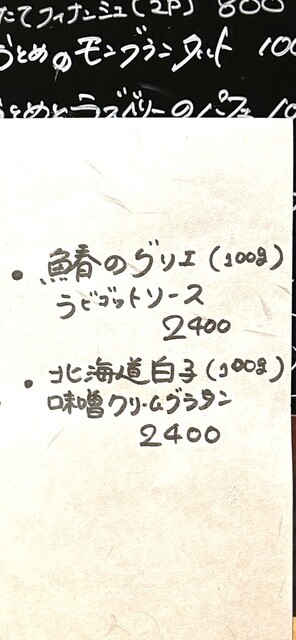 たてフィナンシェ(2P) 800
おとめのモンブランタルト 100
おとめとラズベリーのパフェ 10
• 鰆のグリエ(100g)
ラビゴットソース
2400
• 北海道白子(100g)
味噌クリームグラタン
2400